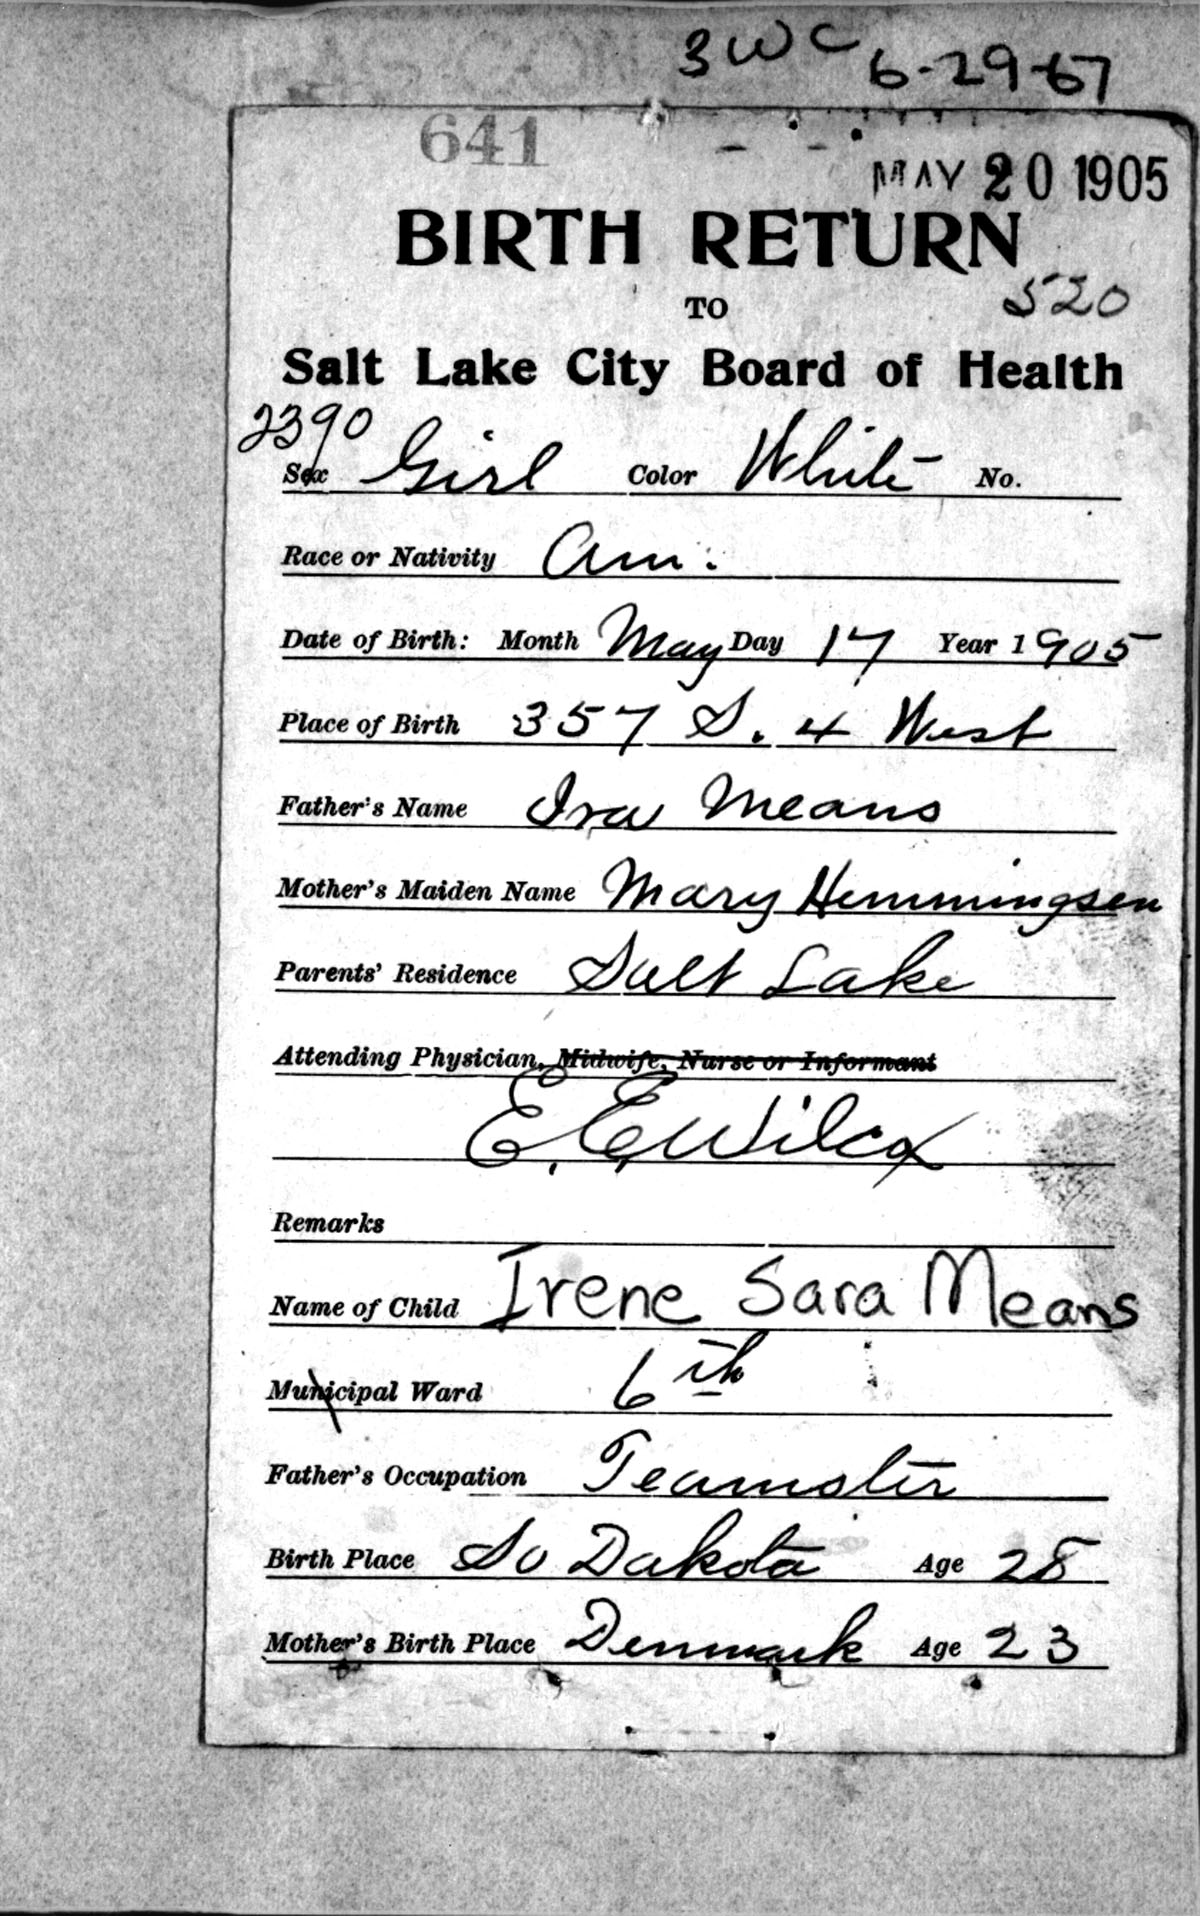 3WC 6-29-67
641
MAY 20 1905
BIRTH RETURN
TO 520
Salt Lake City Board of Health
2390
Sex Girl Color White No.
Race or Nativity Am.
Date of Birth: Month May Day 17 Year 1905
Place of Birth 357 S. 4 West
Father's Name Ira Means
Mother's Maiden Name Mary Hemmingsen
Parents' Residence Salt Lake
Attending Physician, Midwife, Nurse or Informant
E. E. Wilcox
Remarks
Name of Child Irene Sara Means
Municipal Ward 6th
Father's Occupation Teamster
Birth Place So Dakota Age 28
Mother's Birth Place Denmark Age 23